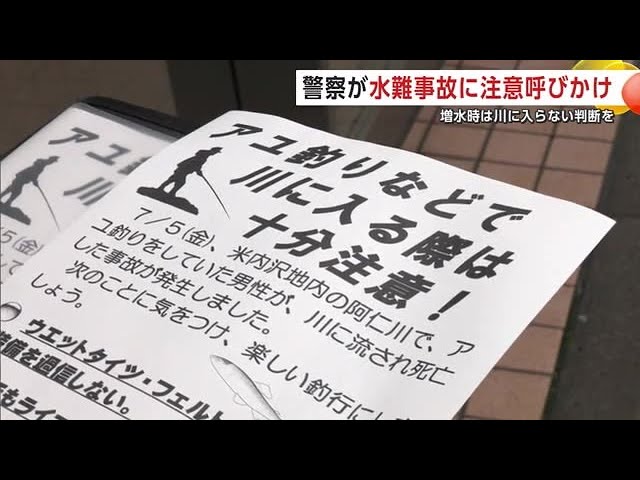 警察が水難事故に注意呼びかけ
増水時は川に入らない判断を
アユ釣りなどで
川に入る際は
十分注意!
7/5(金)、米内沢地内の阿仁川で、ア
ユ釣りをしていた男性が、川に流され死亡
した事故が発生しました。
次のことに気をつけ、楽しい釣行にし
しょう。
ウエットタイツ・フェルト
装備を過信しない。
アユ釣
川に